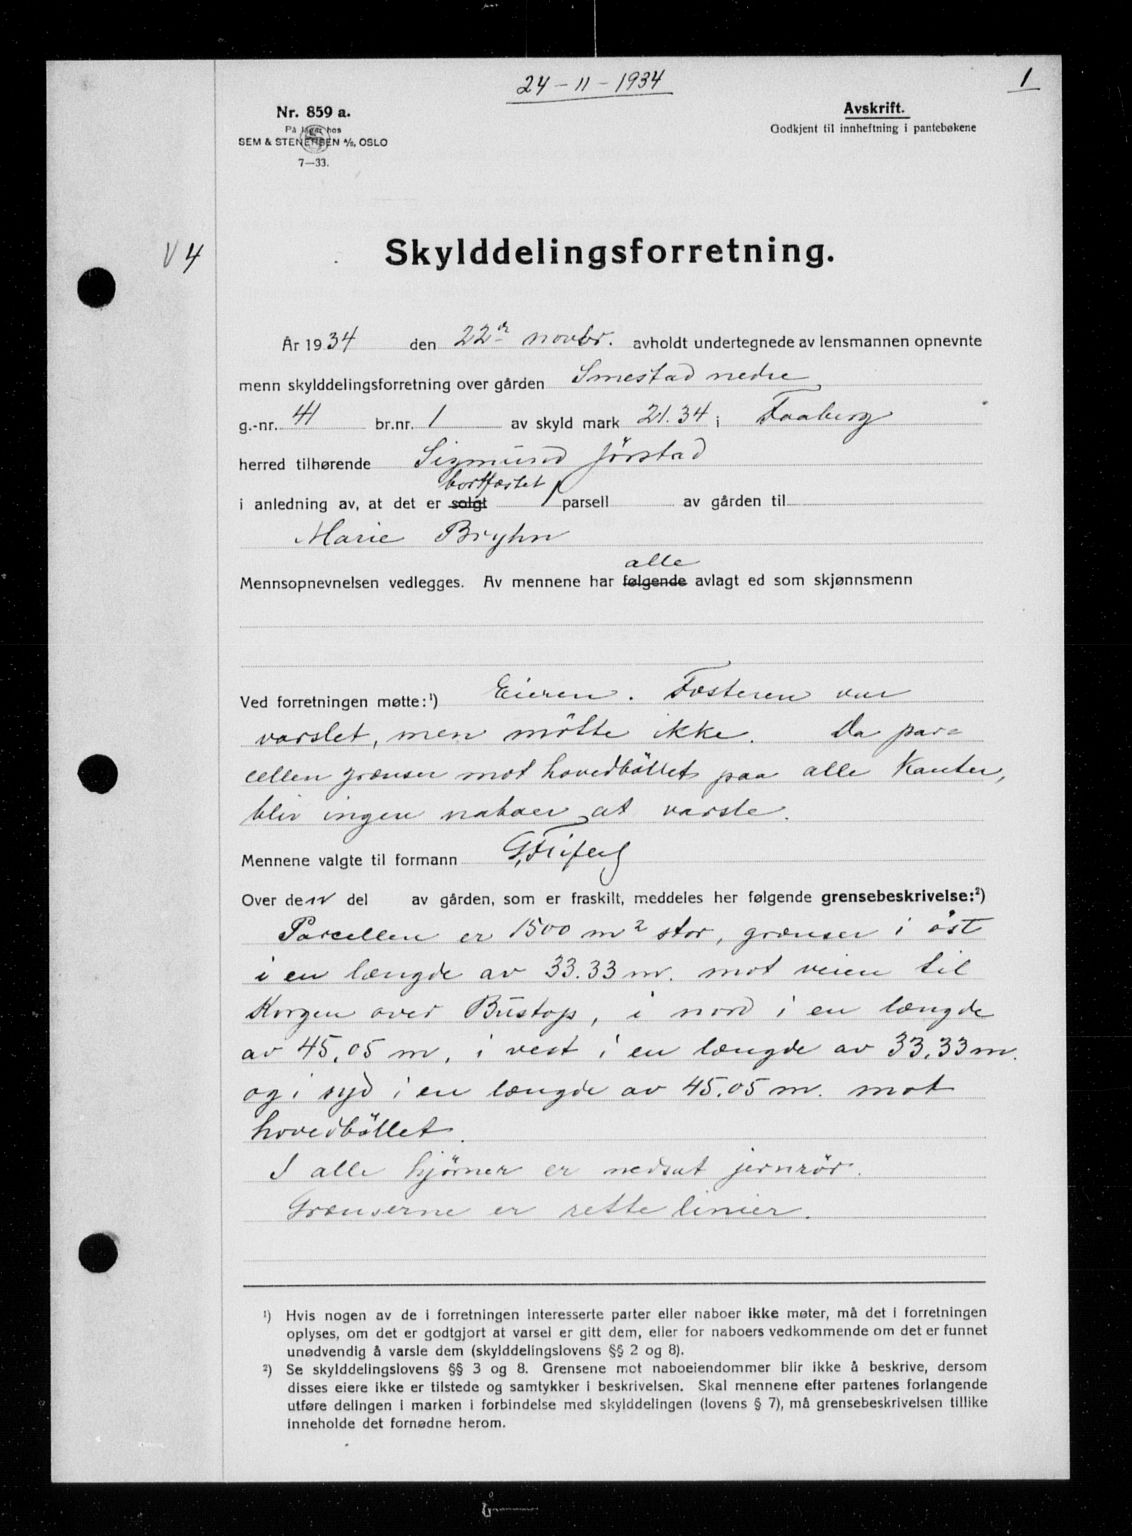 24-11-1934
1
Nr. 859 a.
På lager hos
SEM & STENERSEN A/S, OSLO
7—33.
Avskrift.
Godkjent til innheftning i pantebøkene
V 4
Skylddelingsforretning.
År 1934 den 22de novbr. avholdt undertegnede av lensmannen opnevnte
menn skylddelingsforretning over gården Smestad nedre
g.-nr. 41 br.nr. 1 av skyld mark 21.34 i Faaberg
herred tilhørende Sigmund Jörstad
bortfæstet
i anledning av, at det er solgt 1 parsell av gården til
Marie Bryhn
alle
Mennsopnevnelsen vedlegges. Av mennene har følgende avlagt ed som skjønnsmenn
Ved forretningen møtte:¹) Eieren. Fæsteren var
varslet, men mötte ikke. Da par=
cellen grænser mot hovedböllet paa alle kanter,
blir ingen naboer at varsle.
Mennene valgte til formann G.
Over den del av gården, som er fraskilt, meddeles her følgende grensebeskrivelse:²)
Parcellen er 1500 m² stor, grænser i öst
i en længde av 33.33 m. mot veien til
Korgen over Bustop, i nord i en længde
av 45,05 m, i vest i en længde av 33,33 m.
og i syd i en længde av 45.05 m. mot
hovedböllet.
I alle hjörner er nedsat jernrör.
Grænserne er rette linier.
¹) Hvis nogen av de i forretningen interesserte parter eller naboer ikke møter, må det i forretningen
oplyses, om det er godtgjort at varsel er gitt dem, eller for naboers vedkommende om det er funnet
unødvendig å varsle dem (skylddelingslovens §§ 2 og 8).
²) Se skylddelingslovens §§ 3 og 8. Grensene mot naboeiendommer blir ikke å beskrive, dersom
disses eiere ikke er tilstede og samtykker i beskrivelsen. Skal mennene efter partenes forlangende
utføre delingen i marken i forbindelse med skylddelingen (lovens § 7), må grensebeskrivelsen tillike
inneholde det fornødne herom.